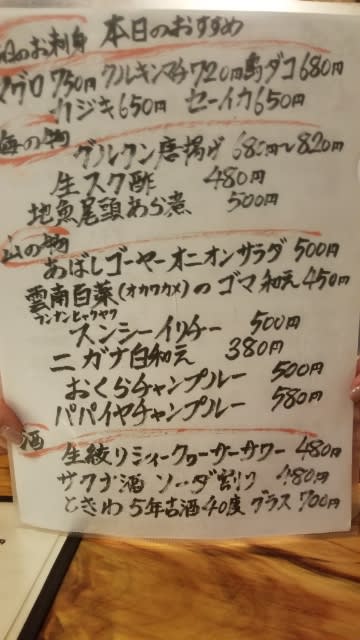 本日のおすすめ
日のお刺身
マグロ 750円 クルキンマチ 720円 島ダコ 680円
カジキ 650円 セーイカ 650円
海の物
グルクン唐揚げ 680円〜820円
生スク酢 480円
地魚尾頭あら煮 500円
山の物
あばしゴーヤーオニオンサラダ 500円
雲南白菜(オカワカメ)のゴマ和え 450円
ウンナンヒャクヤク
スンシーイリチー 500円
ニガナ白和え 380円
おくらチャンプルー 500円
パパイヤチャンプルー 580円
酒
生絞りシィークヮーサーサワー 480円
サクナ酒 ソーダ割り 480円
ときわ 5年古酒 40度 グラス 700円